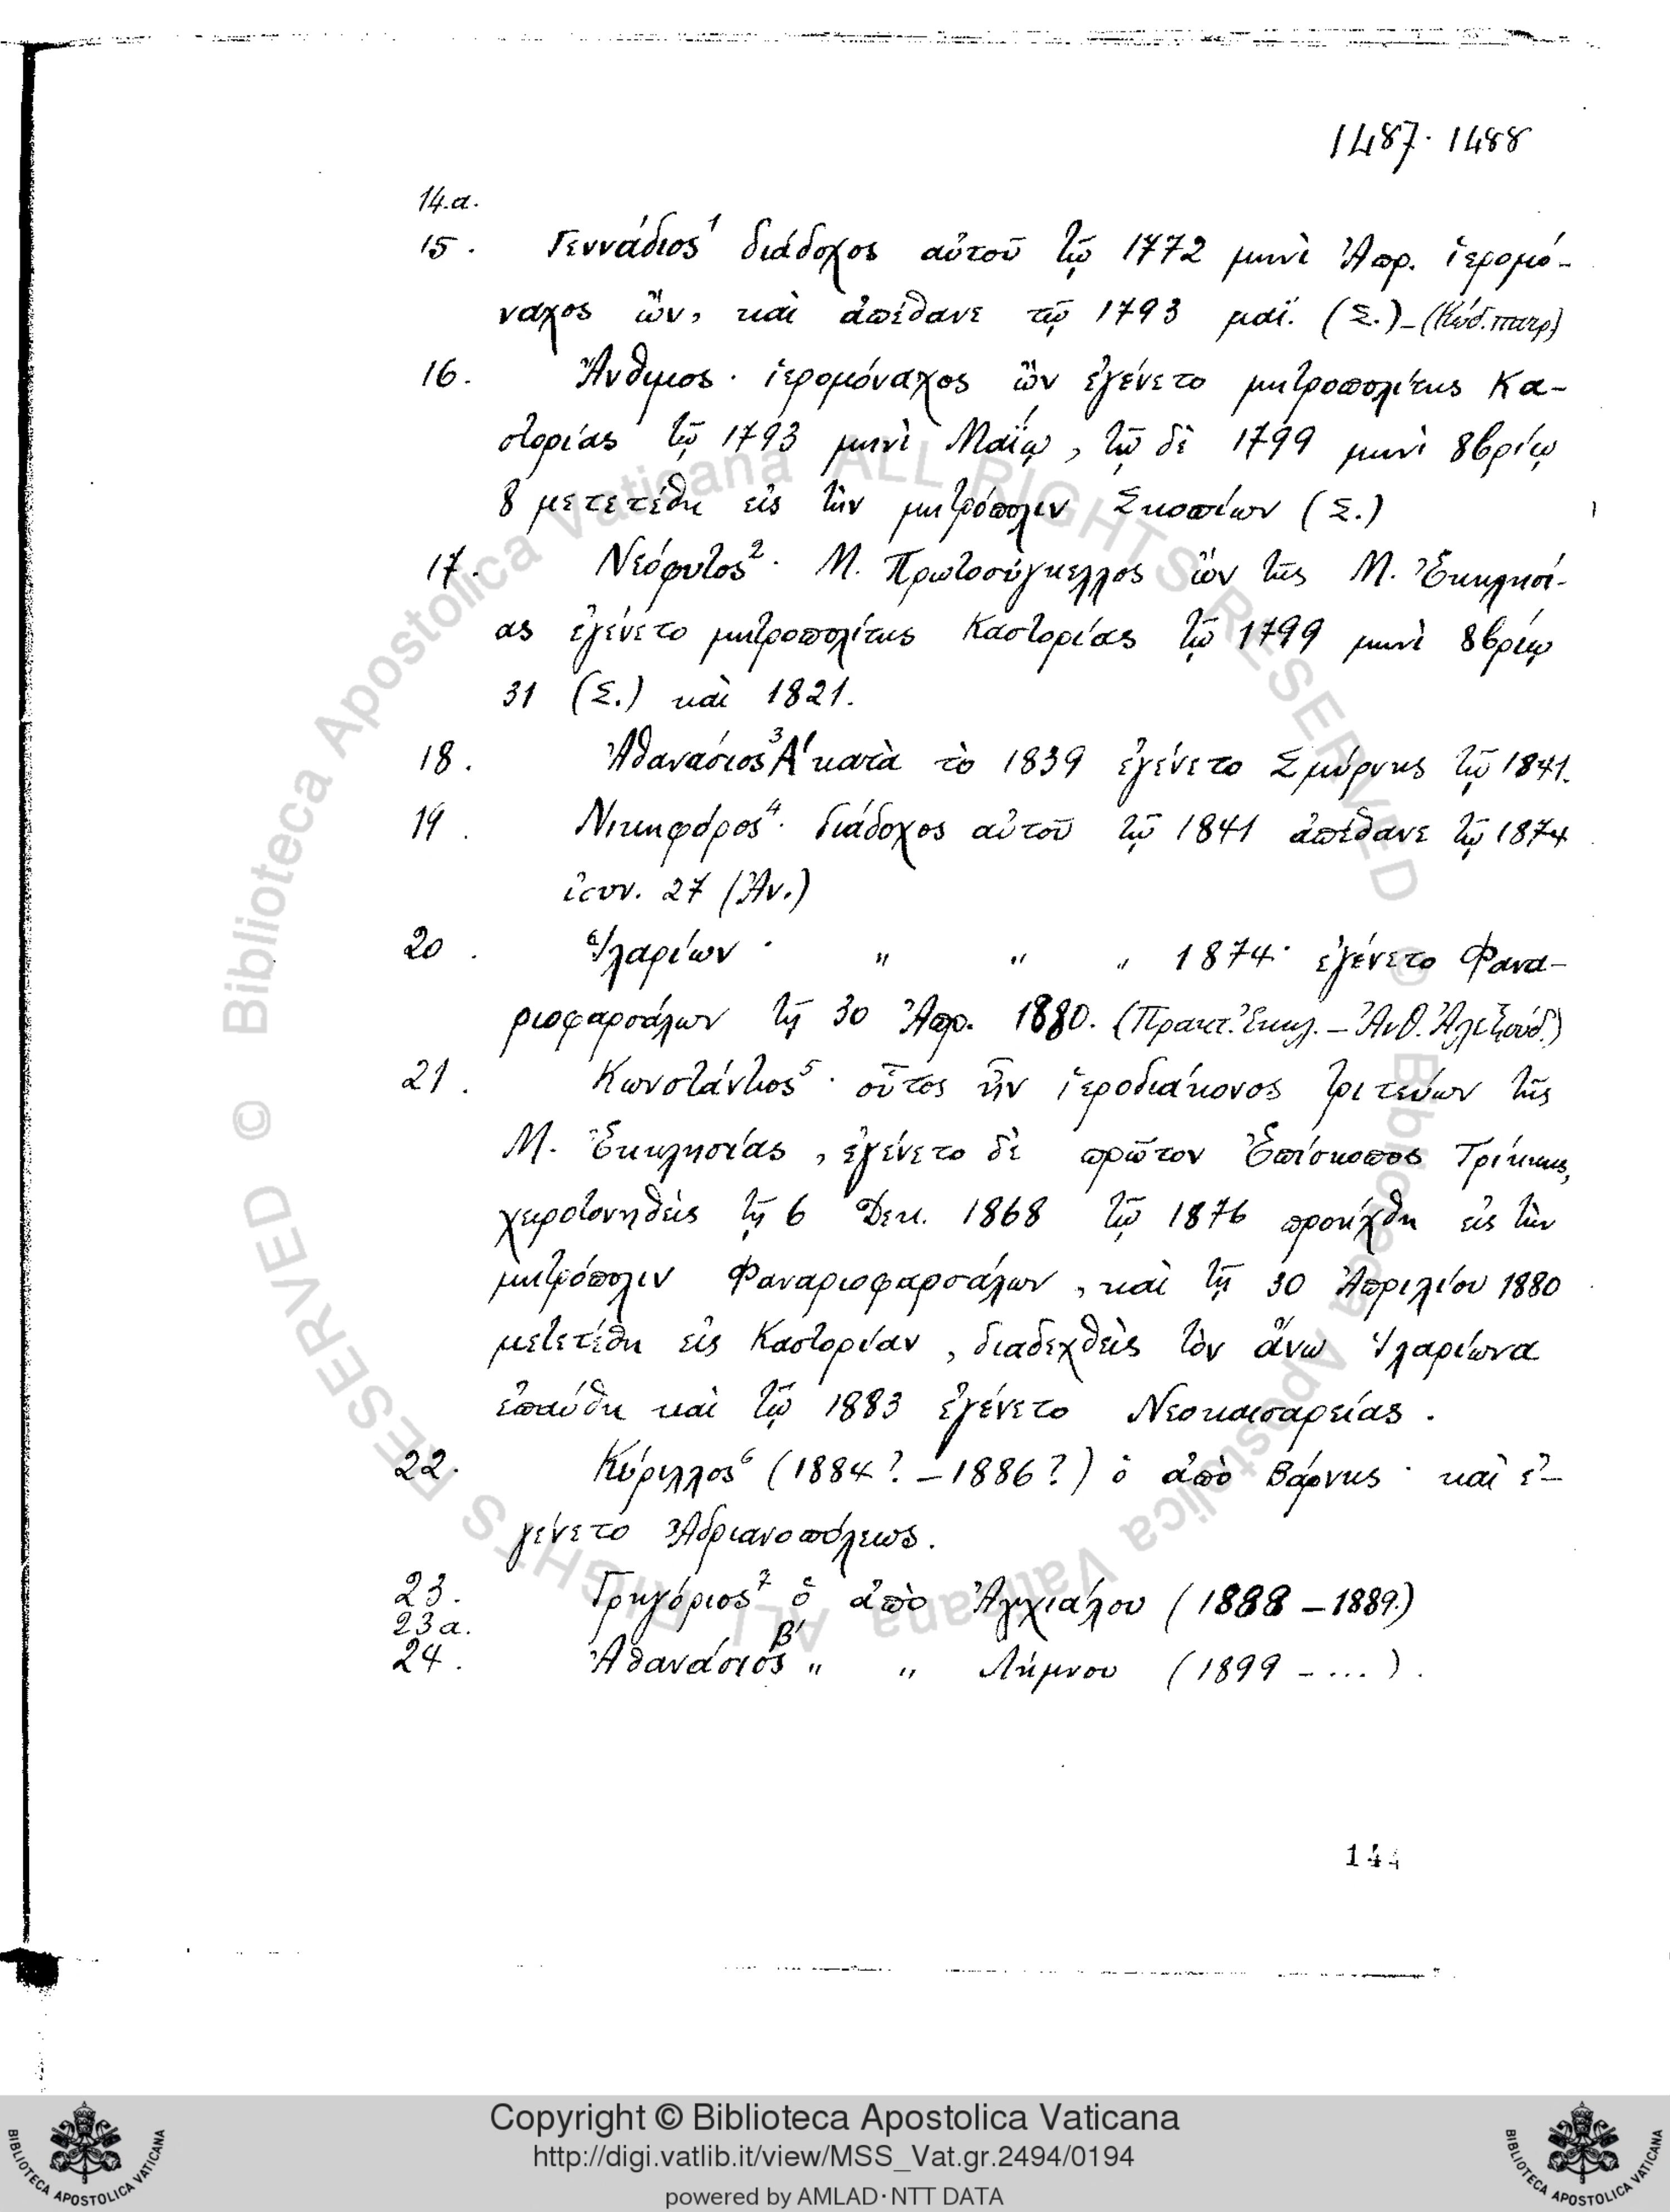 1487. 1488
14.α.
15. Γεννάδιος¹ διάδοχος αὐτοῦ τῷ 1772 μηνὶ Ἀπρ. ἱερομό-
ναχος ὤν, καὶ ἀπέθανε τῷ 1793 μαΐ. (Σ.)–(Κώδ. πατρ)
16. Ἄνθιμος· ἱερομόναχος ὢν ἐγένετο μητροπολίτης Κα-
στορίας τῷ 1793 μηνὶ Μαΐῳ, τῷ δὲ 1799 μηνὶ 8βρίῳ
8 μετετέθη εἰς τὴν μητρόπολιν Σκοπίων (Σ.)
17. Νεόφυτος²· Μ. Πρωτοσύγκελλος ὢν τῆς Μ. Ἐκκλησί-
ας ἐγένετο μητροπολίτης Καστορίας τῷ 1799 μηνὶ 8βρίῳ
31 (Σ.) καὶ 1821.
18. Ἀθανάσιος³ Α' κατὰ τὸ 1839 ἐγένετο Σμύρνης τῷ 1841.
19. Νικηφόρος⁴· διάδοχος αὐτοῦ τῷ 1841 ἀπέθανε τῷ 1874
ἰουν. 27 (Ἀν.)
20. Ἱλαρίων · " " " 1874· ἐγένετο Φανα-
ριοφαρσάλων τῇ 30 Ἀπρ. 1880. (Πρακτ. Ἐκκλ. – Ἀνθ. Ἀλεξούδ.)
21. Κωνστάντιος⁵· οὗτος ἦν ἱεροδιάκονος τριτεύων τῆς
Μ. Ἐκκλησίας, ἐγένετο δὲ πρῶτον Ἐπίσκοπος Τρίκκης,
χειροτονηθεὶς τῇ 6 Δεκ. 1868 τῷ 1876 προήχθη εἰς τὴν
μητρόπολιν Φαναριοφαρσάλων, καὶ τῇ 30 Ἀπριλίου 1880
μετετέθη εἰς Καστορίαν, διαδεχθεὶς τὸν ἄνω Ἱλαρίωνα
ἐπαύθη καὶ τῷ 1883 ἐγένετο Νεοκαισαρείας.
22. Κύριλλος⁶ (1884? – 1886?) ὁ ἀπὸ Βάρνης· καὶ ἐ-
γένετο Ἀδριανοπόλεως.
23. Γρηγόριος⁷ ὁ ἀπὸ Ἀγχιάλου (1888 – 1889.)
23α.
24. Ἀθανάσιος Β' " " Λήμνου (1899 – ...).
144
Copyright © Biblioteca Apostolica Vaticana
http://digi.vatlib.it/view/MSS_Vat.gr.2494/0194
powered by AMLAD·NTT DATA
BIBLIOTECA APOSTOLICA VATICANA
BIBLIOTECA APOSTOLICA VATICANA
© Biblioteca Apostolica Vaticana ALL RIGHTS RESERVED
© Biblioteca Apostolica Vaticana ALL RIGHTS RESERVED